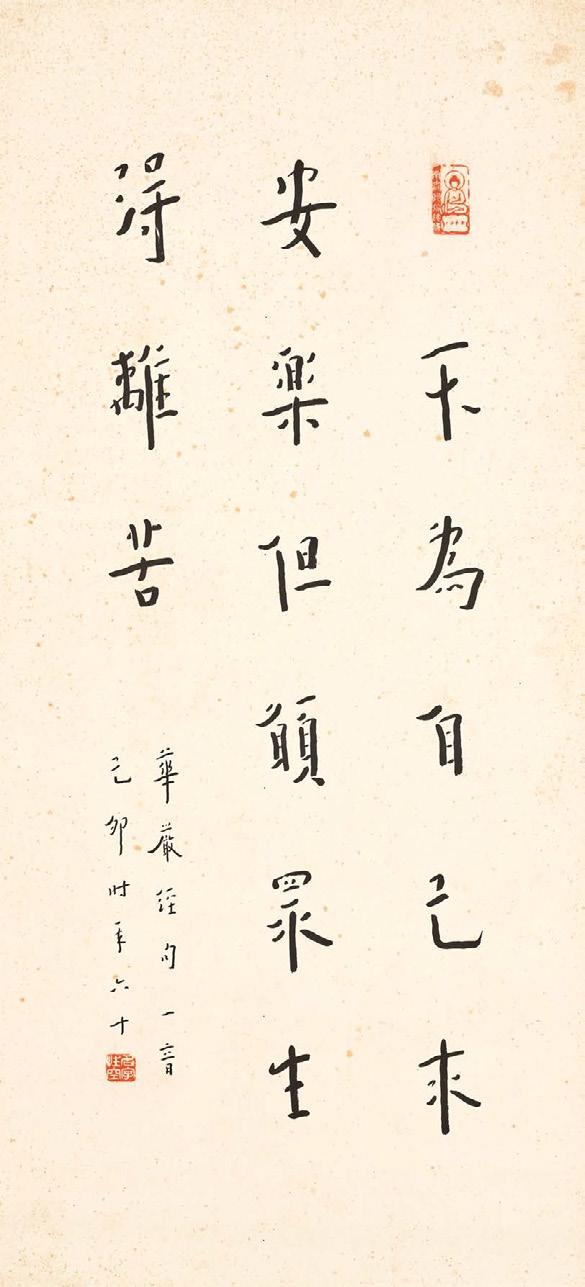 不為自己求
安樂但願眾生
得離苦
華嚴經句一音
己卯時年六十
名字性空